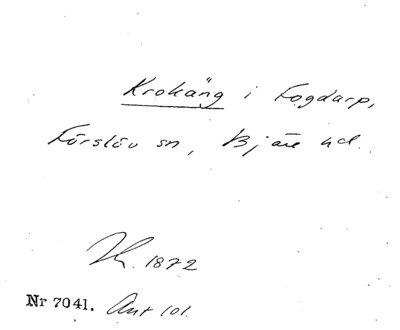 Krokäng i Fogdarp,
Förslöv sn, Bjäre hd.
1872
Nr 7041. Ant 101.